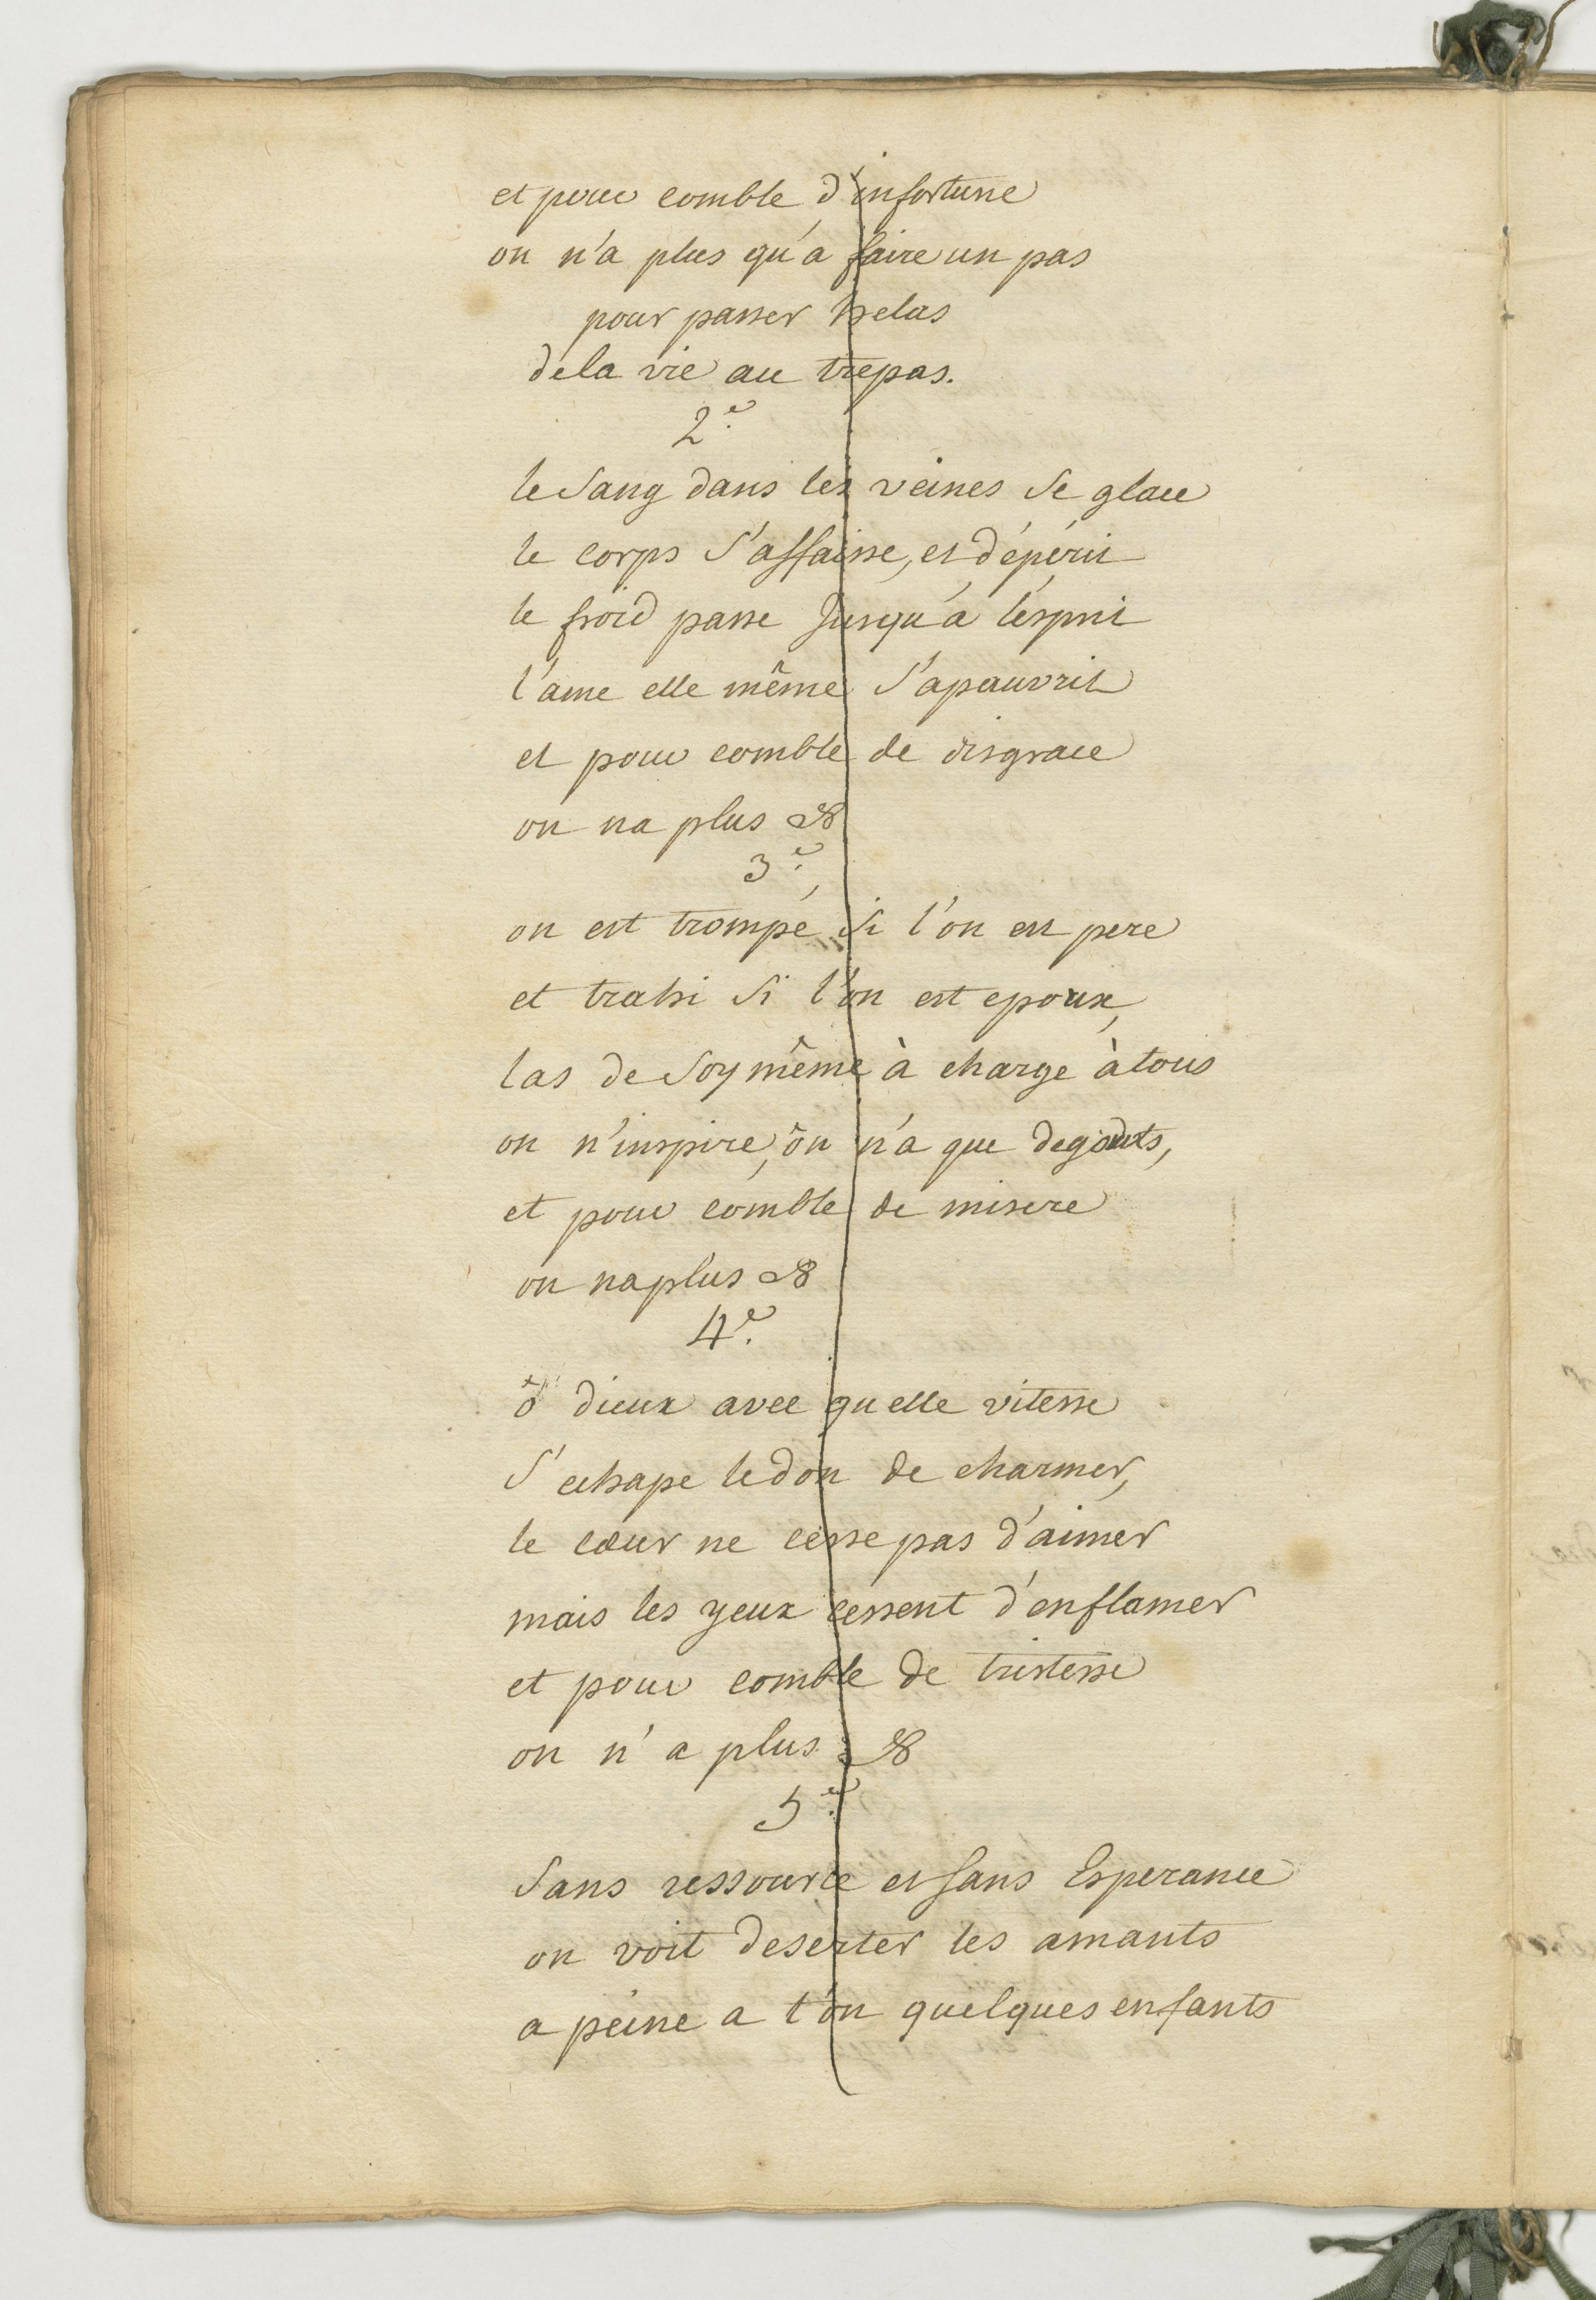 et pour comble d'infortune
on n'a plus qu'a faire un pas
pour passer helas
dela vie au trepas.
2e.
le Sang dans les veines Se glace
le corps S'affaisse, et dépérit
le froid passe Jusqu'a l'esprit
l'ame elle même S'apauvrit
et pour comble de disgrace
on na plus &
3e.
on est trompé Si l'on est pere
et trahi Si l'on est epoux,
las de Soy même à charge à tous
on n'inspire, on n'a que degouts,
et pour comble de misere
on na plus &
4e.
ô dieux avec quelle vitesse
S'echape le don de charmer,
le cœur ne cesse pas d'aimer
mais les yeux cessent d'enflamer
et pour comble de tristesse
on n'a plus &
5e.
Sans ressource et Sans Esperance
on voit deserter les amants
a peine a t'on quelques enfants